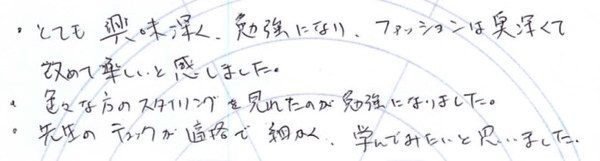 ・とても興味深く、勉強になり、ファッションは奥深くて
改めて楽しいと感しました。
・色々な方のスタイリングを見れたのが勉強になりました。
・先生のチェックが適格で細かく、学んでみたいと思いました。